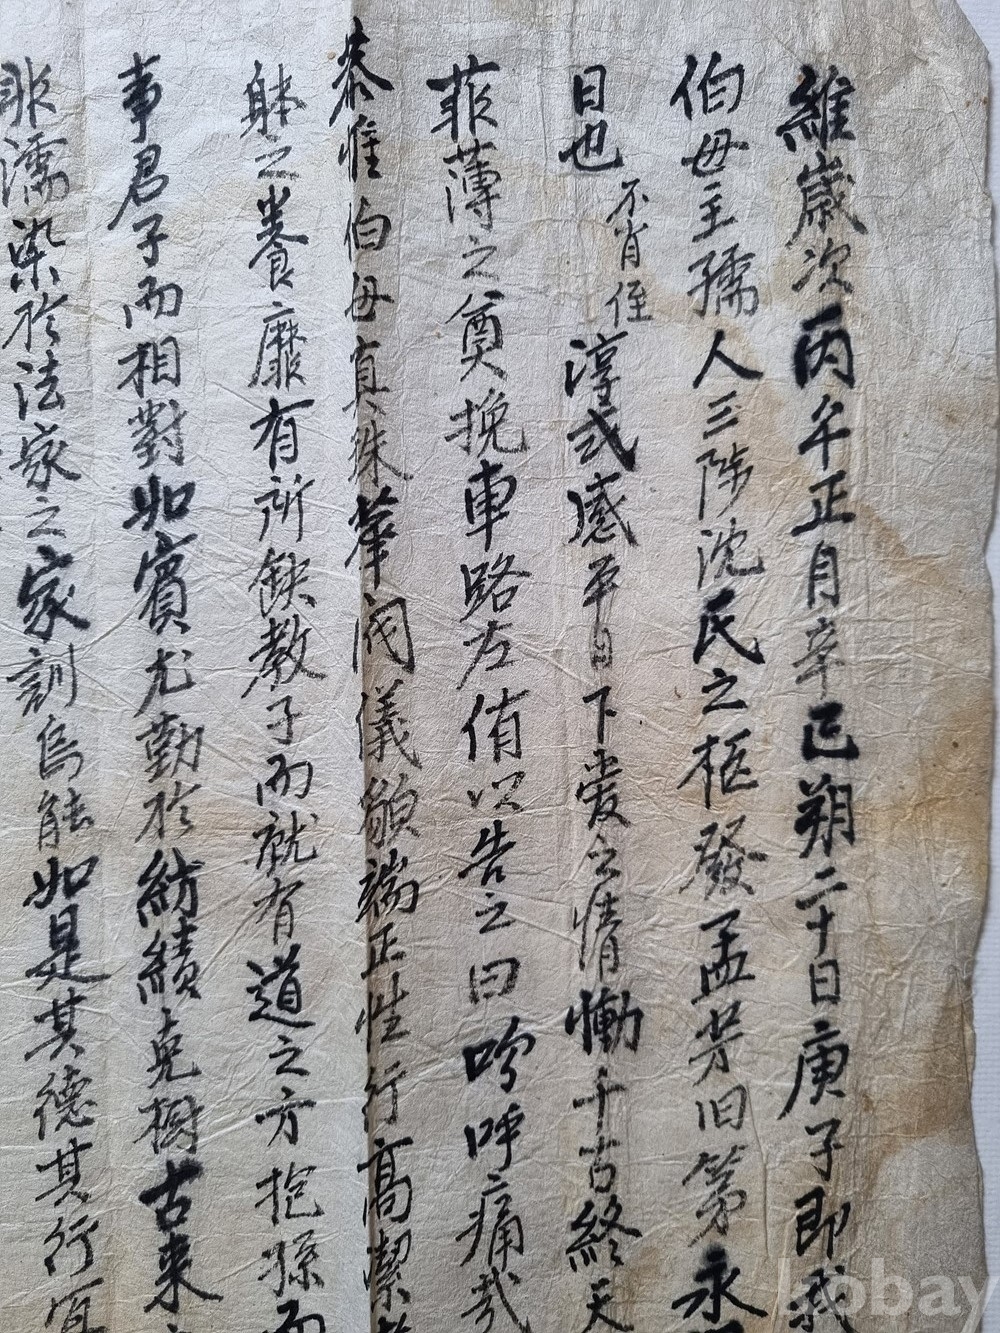 維歲次丙午正月辛巳朔二十日庚子即我
伯母主孺人三陟沈氏之柩發孟芳旧第永
日也不肖侄淳貳感平日下愛之情慟千古終天
菲薄之奠挽車路左侑以告之曰嗚呼痛哉
恭惟伯母真珠華閥儀額端正性行高潔
躰之養靡有所缺教子而就有道之方抱孫而
事君子而相對如賓尤勤於紡績克樹古來
非濡染於法家之家訓烏能如是其德其行宜
kobay